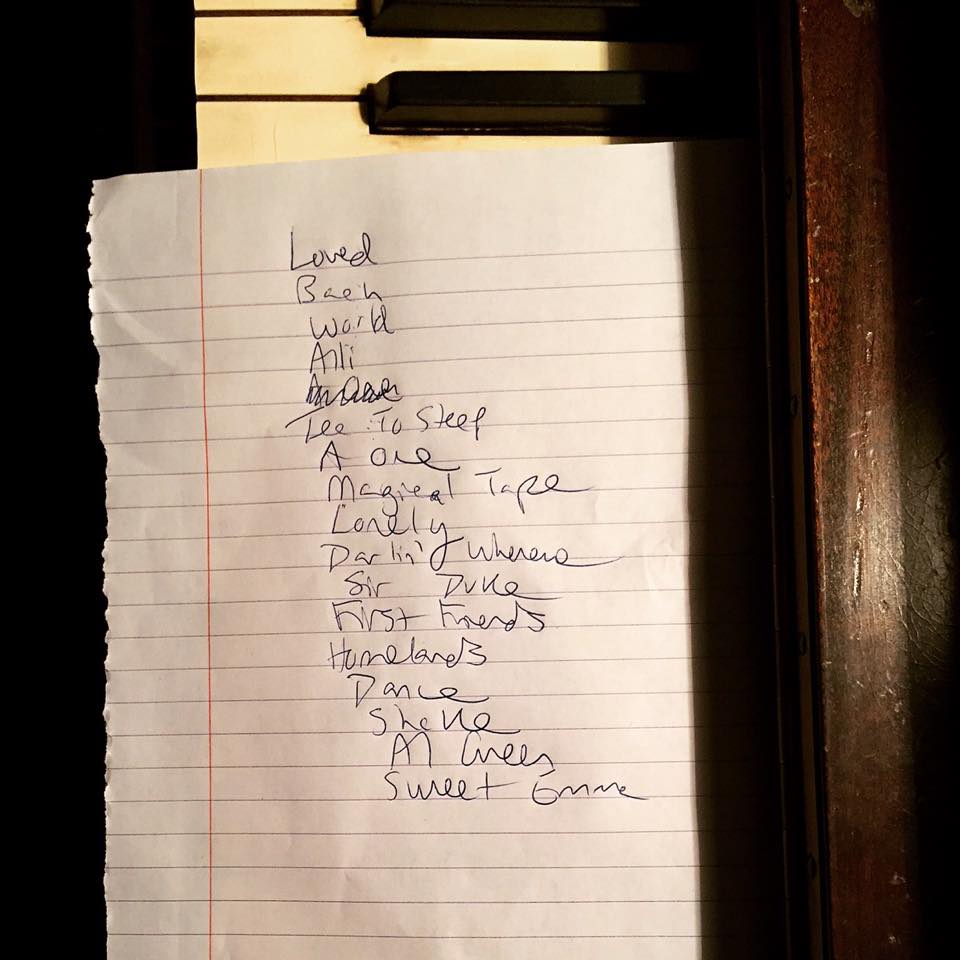 Loved
Bach
World
Alli
Tee To Steep
A one
Magical Tape
Lonely
Darlin' Where
Sir Duke
First Friends
Homelands
Dance
Shake
Al Green
Sweet Emma